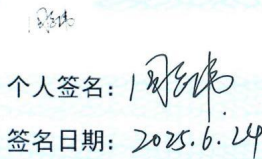 个人签名：周
签名日期：2025.6.24